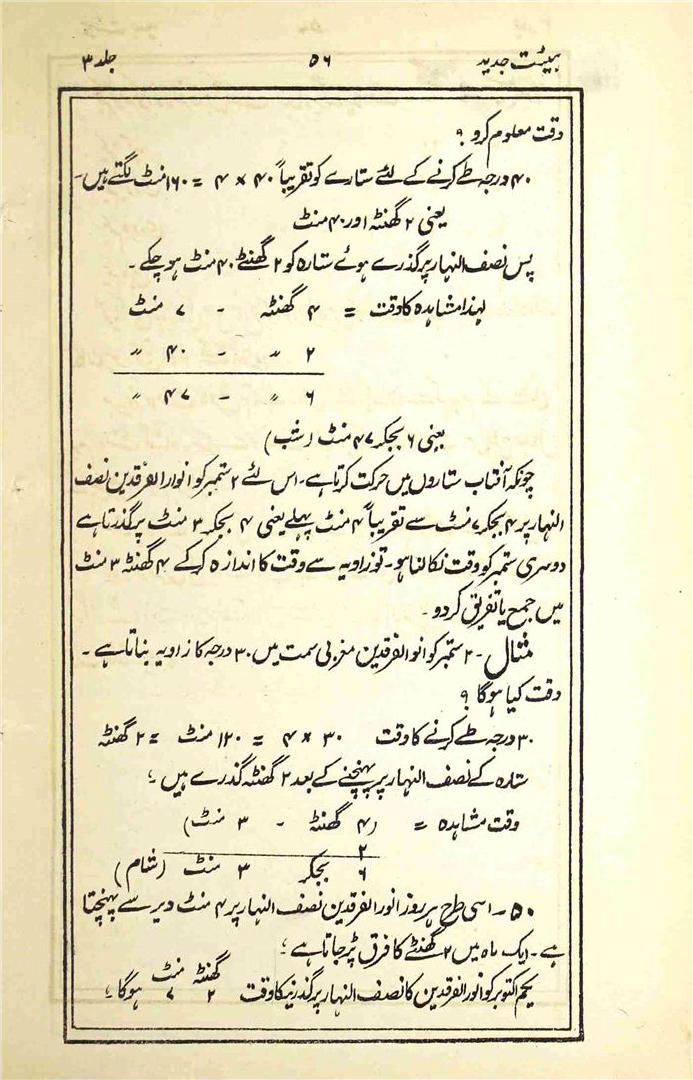 ہیئت جدید ۵۶ جلد ۳
وقت معلوم کرو ؟
۴۰ درجہ طے کرنے کے لئے ستارے کو تقریباً ۴۰ × ۴ = ۱۶۰ منٹ لگتے ہیں۔
یعنی ۲ گھنٹہ اور ۴۰ منٹ
پس نصف النہار پر گذرے ہوئے ستارہ کو ۲ گھنٹے ۴۰ منٹ ہوچکے۔
لہذا مشاہدہ کا وقت = ۴ گھنٹہ - ۷ منٹ
۲ " - ۴۰ "
۶ " - ۴۷ "
یعنی ۶ بجکر ۴۷ منٹ (شب)
چونکہ آفتاب ستاروں میں حرکت کرتا ہے۔ اس لئے ۲ ستمبر کو انوار الفرقدین نصف
النہار پر ۴ بجکر ۷ منٹ سے تقریباً ۴ منٹ پہلے یعنی ۴ بجکر ۳ منٹ پر گذرتا ہے
دوسری ستمبر کو وقت نکالنا ہو۔ تو زاویہ سے وقت کا اندازہ کرکے ۴ گھنٹہ ۳ منٹ
میں جمع یا تفریق کردو۔
مثال۔ ۲ ستمبر کو انور الفرقدین مغربی سمت میں ۳۰ درجہ کا زاویہ بناتا ہے۔
وقت کیا ہوگا ؟
۳۰ درجہ طے کرنے کا وقت ۳۰ × ۴ = ۱۲۰ منٹ = ۲ گھنٹہ
ستارہ کے نصف النہار پر پہنچنے کے بعد ۲ گھنٹہ گذرے ہیں ؛
وقت مشاہدہ = (۴ گھنٹہ - ۳ منٹ)
۲
۶ بجکر ۳ منٹ (شام)
۵۰۔ اسی طرح ہر روز انور الفرقدین نصف النہار پر ۴ منٹ دیر سے پہنچتا
ہے۔ ایک ماہ میں ۲ گھنٹے کا فرق پڑجاتا ہے ؛
یکم اکتوبر کو انور الفرقدین کا نصف النہار پر گذرنیکا وقت ۲ گھنٹہ ۷ منٹ ہوگا ؛